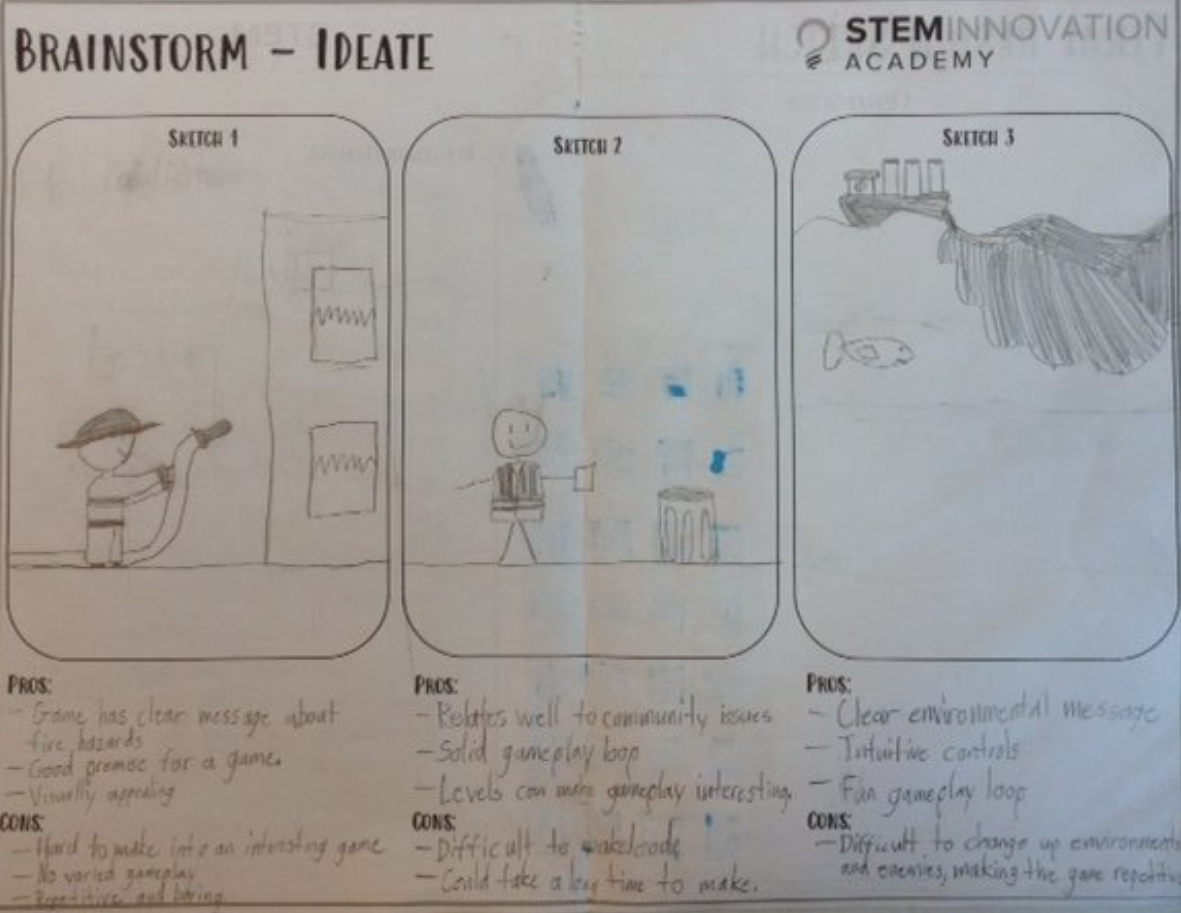 BRAINSTORM - IDEATE
STEM INNOVATION
ACADEMY
SKETCH 1
SKETCH 2
SKETCH 3
PROS:
- Game has clear message about
fire hazards
- Good premise for a game.
- Visually appealing
CONS:
- Hard to make into an intersting game
- No varied gameplay
- Repetitive and boring
PROS:
- Relates well to community issues
- Solid gameplay loop
- Levels can make gameplay interesting,
CONS:
- Difficult to make/code
- Could take a long time to make.
PROS:
- Clear environmental message
- Intuitive controls
- Fun gameplay loop
CONS:
- Difficult to change up environments
and enemies, making the game repetitive